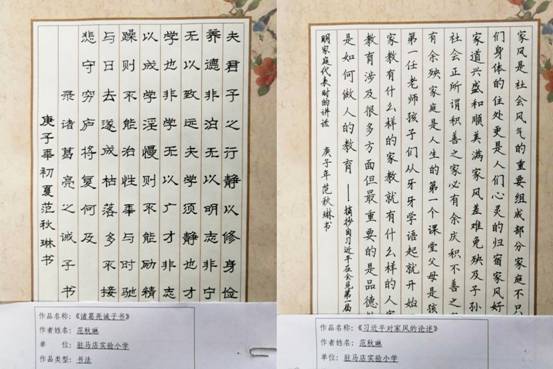 夫君子之行静以修身俭
养德非泊无以明志非宁
无以致远夫学须静也才
学也非学无以广才非志
以成学淫慢则不能励精
躁则不能治性年与时驰
与日去遂成枯落多不接
悲守穷庐将复何及
录诸葛亮之诫子书
庚子年初夏范秋琳书
作品名称:《诸葛亮诫子书》
作者姓名: 范秋琳
单 位: 驻马店实验小学
作品类型: 书法
家风是社会风气的重要组成部分家庭不只
们身体的住处更是人们心灵的归宿家风好
家道兴盛和顺美满家风差难免殃及子孙
社会正所谓积善之家必有余庆积不善之
有余殃家庭是人生的第一个课堂父母是孩
第一任老师孩子们从牙牙学语起就开始
家教有什么样的家教就有什么样的人
教育涉及很多方面但最重要的是品德
是如何做人的教育——摘抄自习近平在会见第一届
明家庭代表时的讲话 庚子年范秋琳书
作品名称:《习近平对家风的论述》
作者姓名: 范秋琳
单 位: 驻马店实验小学